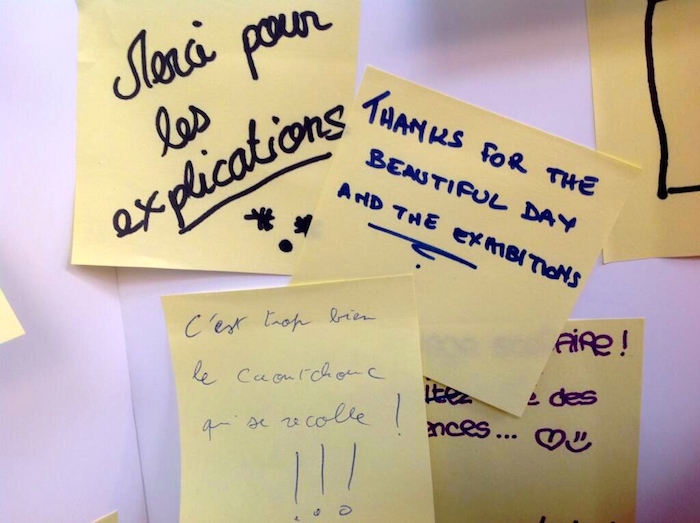 Merci pour
les
explications
THANKS FOR THE
BEAUTIFUL DAY
AND THE EXHIBITIONS
C'est trop bien
le caoutchouc
qui se recolle !
!!!
aire !
des
ences...